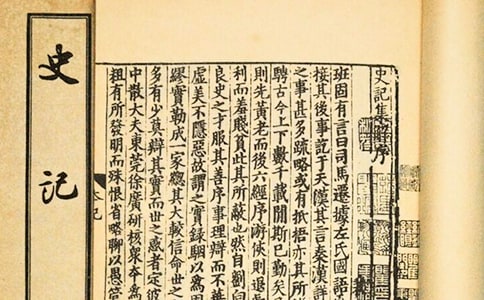 史記
史記集解序
班固有言曰司馬遷據左氏國語
接其後事訖于天漢其言秦漢詳
之事甚多疏略或有抵梧亦其所
騁古今上下數千載間斯已勤矣
則先黃老而後六經序游俠則退處
利而羞賤貧此其所蔽也然自劉向
良史之才服其善序事理辯而不華
虛美不隱惡故謂之實錄駰以爲固
繆實勒成一家總其大較信命世之
多有少真辯其實而世之惑者定彼
中散大夫東莞徐廣研核衆本爲
粗有所發明而殊恨省略聊以愚管